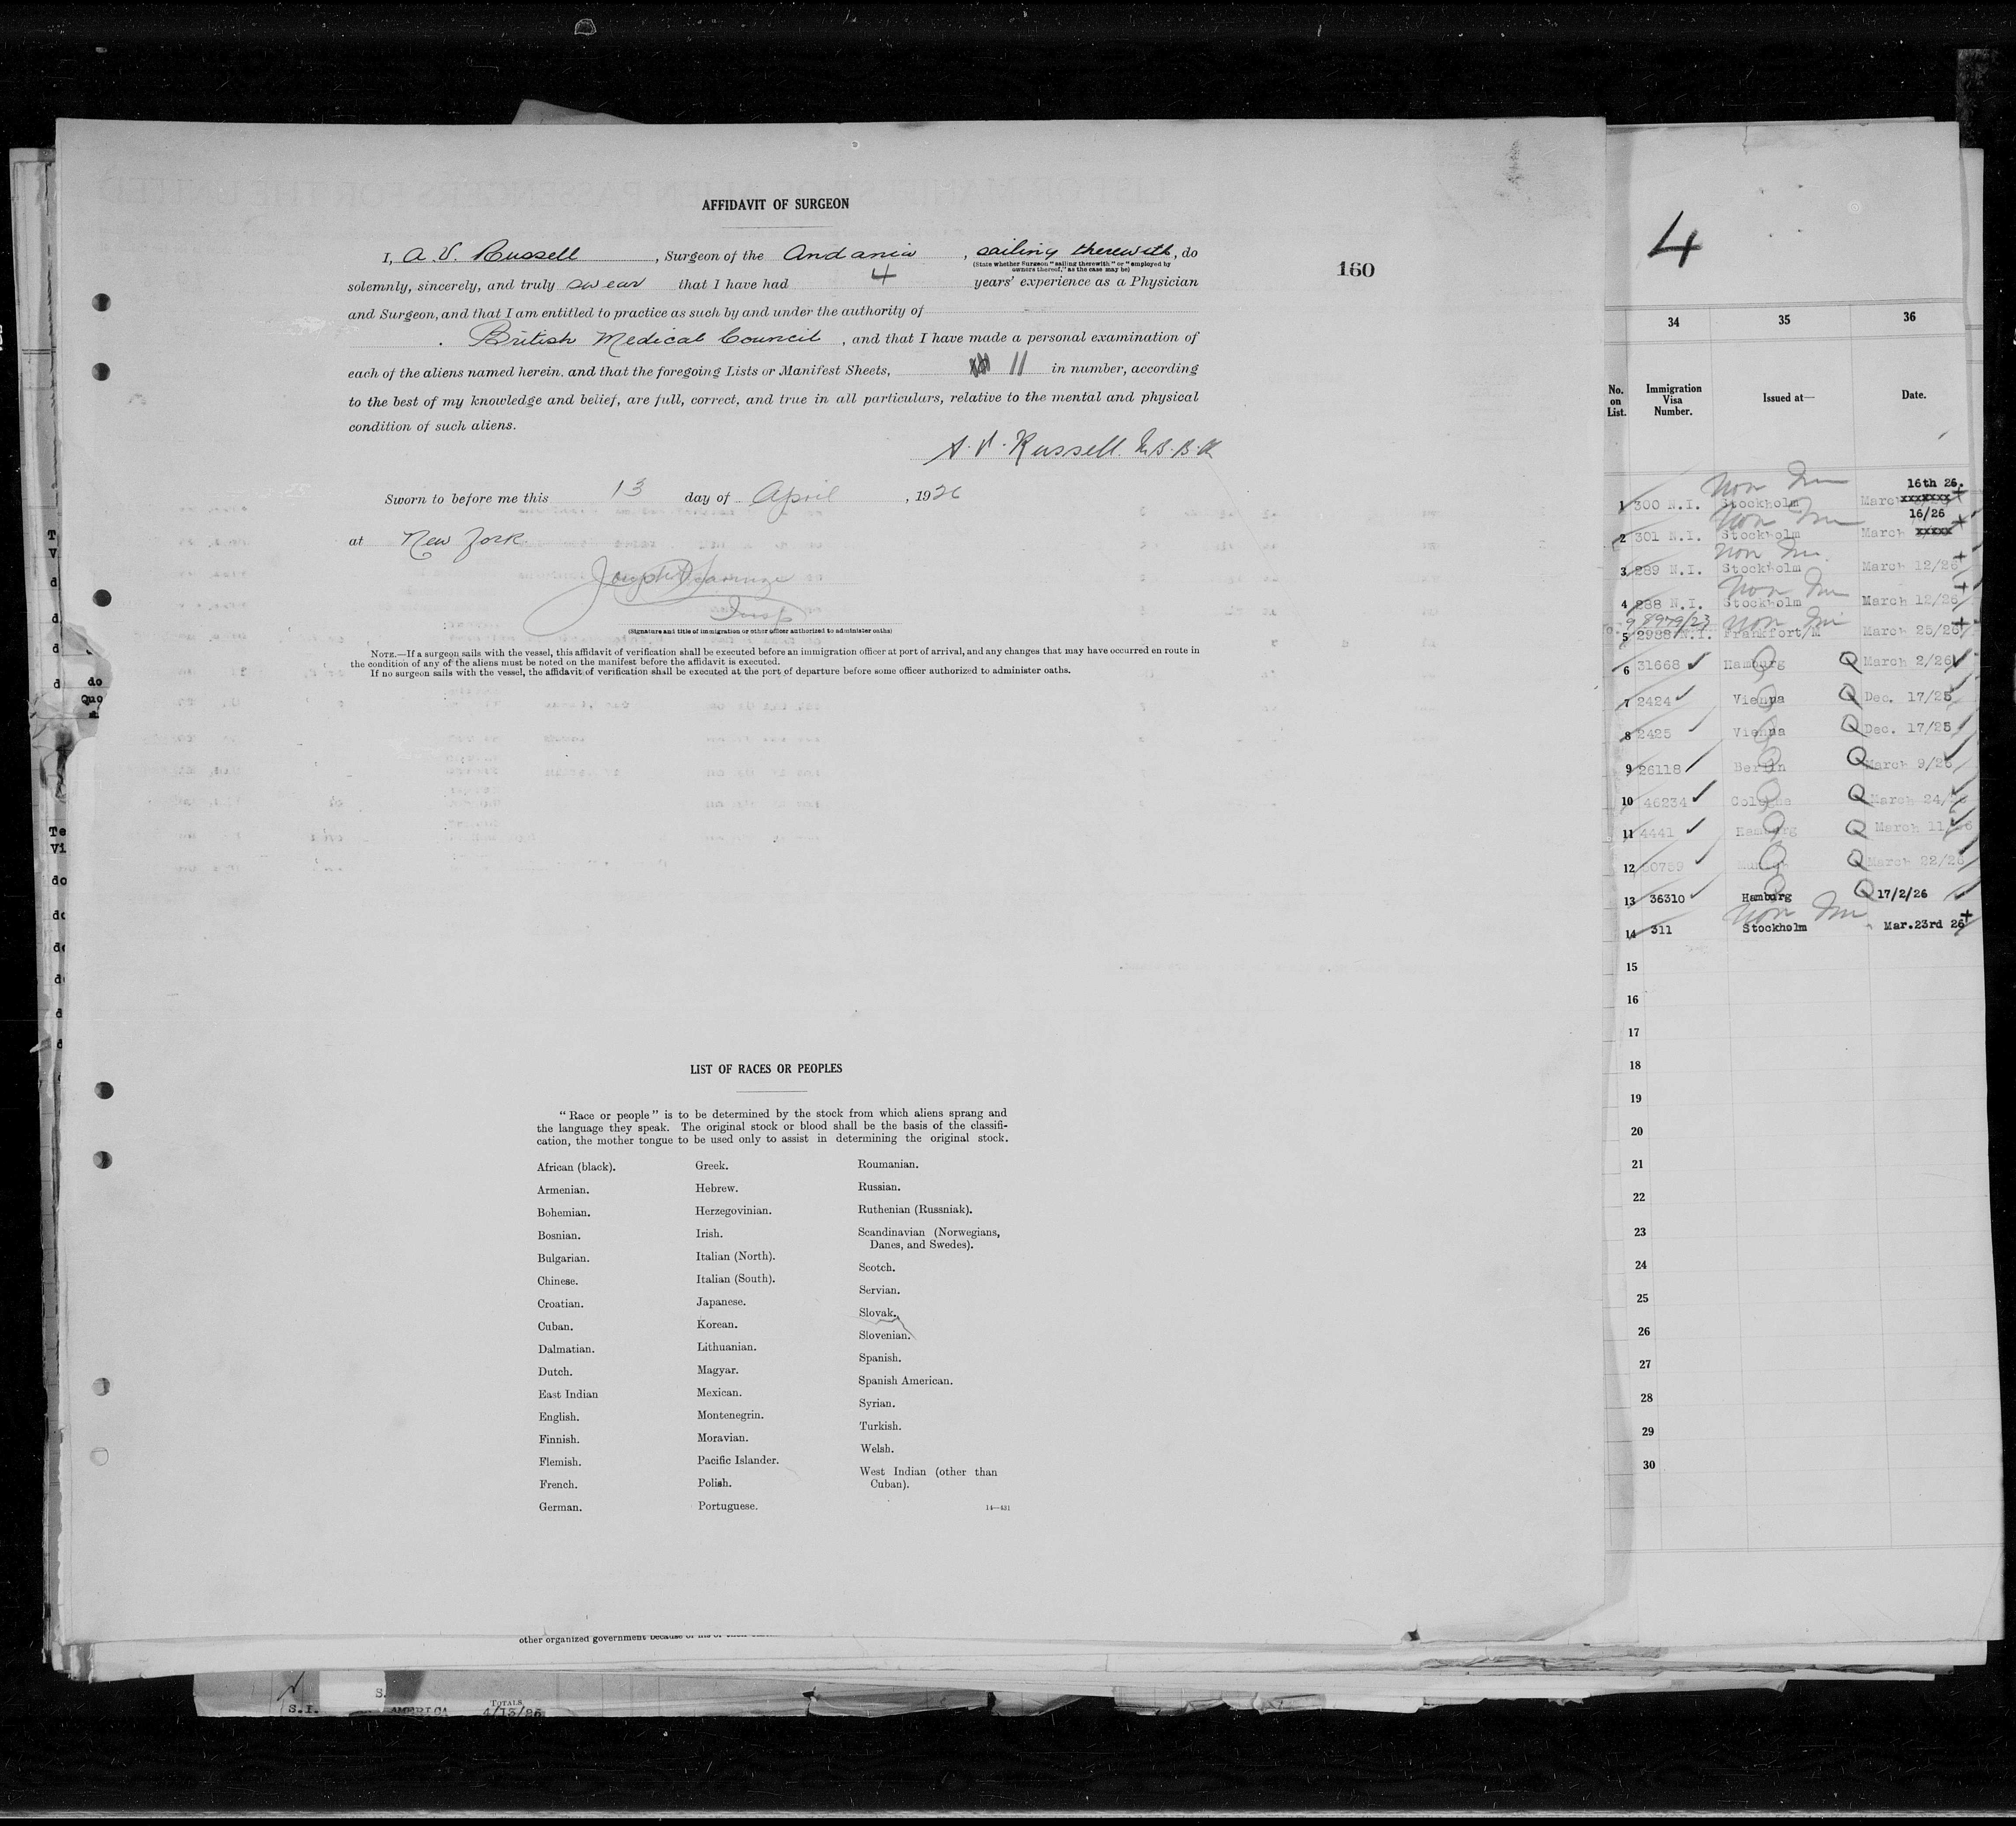 AFFIDAVIT OF SURGEON
I, A. V. Russell, Surgeon of the Andania, sailing therewith, do
(State whether Surgeon "sailing therewith" or "employed by
owners thereof," as the case may be)
solemnly, sincerely, and truly swear that I have had 4 years' experience as a Physician
and Surgeon, and that I am entitled to practice as such by and under the authority of
British Medical Council, and that I have made a personal examination of
each of the aliens named herein, and that the foregoing Lists or Manifest Sheets, 11 in number, according
to the best of my knowledge and belief, are full, correct, and true in all particulars, relative to the mental and physical
condition of such aliens.
A. V. Russell. M.B. B.
Sworn to before me this 13 day of April, 1926
at New York
Joseph
Insp
(Signature and title of immigration or other officer authorized to administer oaths)
NOTE.—If a surgeon sails with the vessel, this affidavit of verification shall be executed before an immigration officer at port of arrival, and any changes that may have occurred en route in
the condition of any of the aliens must be noted on the manifest before the affidavit is executed.
If no surgeon sails with the vessel, the affidavit of verification shall be executed at the port of departure before some officer authorized to administer oaths.
160
LIST OF RACES OR PEOPLES
"Race or people" is to be determined by the stock from which aliens sprang and
the language they speak. The original stock or blood shall be the basis of the classifi-
cation, the mother tongue to be used only to assist in determining the original stock.
African (black).
Armenian.
Bohemian.
Bosnian.
Bulgarian.
Chinese.
Croatian.
Cuban.
Dalmatian.
Dutch.
East Indian
English.
Finnish.
Flemish.
French.
German.
Greek.
Hebrew.
Herzegovinian.
Irish.
Italian (North).
Italian (South).
Japanese.
Korean.
Lithuanian.
Magyar.
Mexican.
Montenegrin.
Moravian.
Pacific Islander.
Polish.
Portuguese.
Roumanian.
Russian.
Ruthenian (Russniak).
Scandinavian (Norwegians,
Danes, and Swedes).
Scotch.
Servian.
Slovak.
Slovenian.
Spanish.
Spanish American.
Syrian.
Turkish.
Welsh.
West Indian (other than
Cuban).
14—431
other organized government because of his or
S.I.
AMERICA
TOTALS
4/13/26
4
34 35 36
No. on List. Immigration Visa Number. Issued at— Date.
16th 26.
1 300 N.I. Stockholm Non Im March xxxxxxx +
16/26
2 301 N.I. Stockholm Non Im March xxxxx +
3 289 N.I. Stockholm Non Im March 12/26 +
4 288 N.I. Stockholm Non Im March 12/26 +
5 2988 N.I. Frankfort/M Non Im March 25/26 +
6 31668 Hamburg Q March 2/26
7 2424 Vienna Q Dec. 17/25
8 2425 Vienna Q Dec. 17/25
9 26118 Berlin Q March 9/26
10 46234 Cologne Q March 24/
11 4441 Hamburg Q March 11/26
12 Q March 22/26
13 36310 Hamburg Q 17/2/26
14 311 Stockholm Non Im Mar.23rd 26 +
15
16
17
18
19
20
21
22
23
24
25
26
27
28
29
30